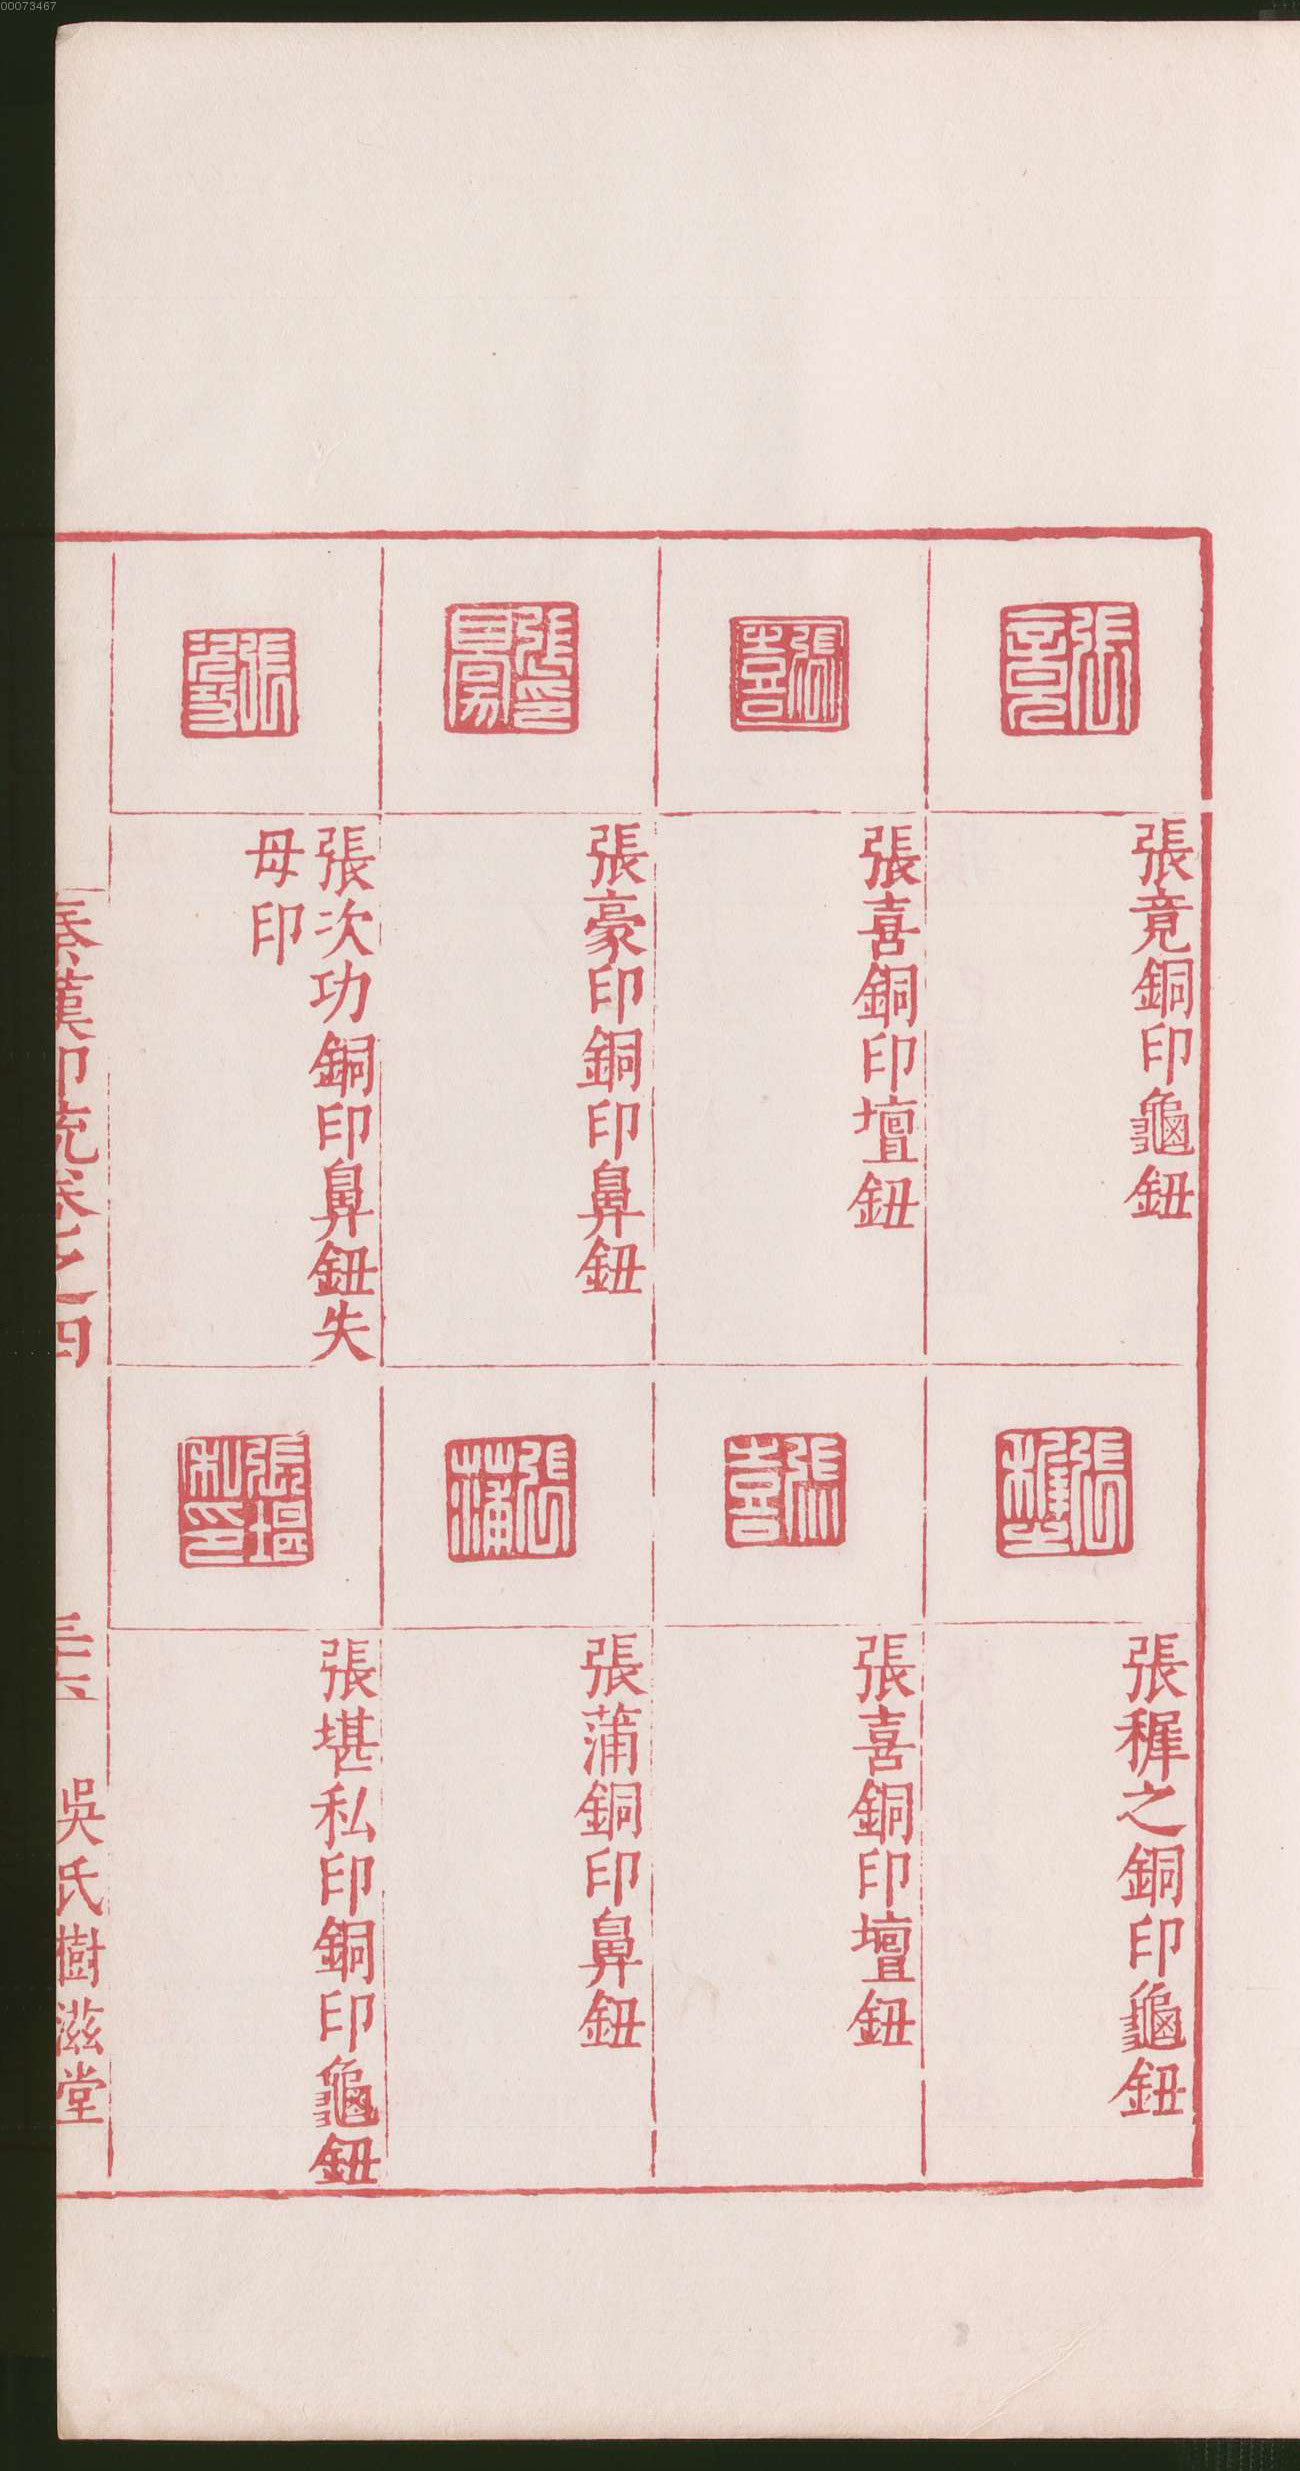 00073467
張竟
張竟銅印龜鈕
張喜
張喜銅印壇鈕
張豪印銅印鼻鈕
張次功銅印鼻鈕失
母印
張穉之
張穉之銅印龜鈕
張喜
張喜銅印壇鈕
張蒲
張蒲銅印鼻鈕
張堪私印
張堪私印銅印龜鈕
秦漢印統卷之四
吳氏樹滋堂